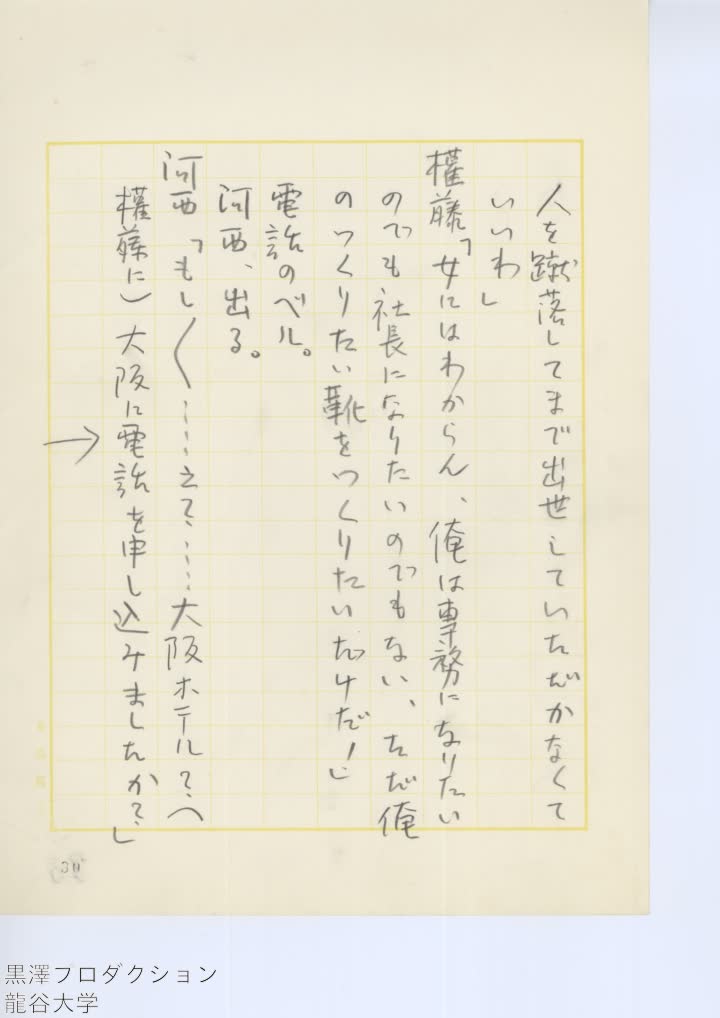 人を蹴落してまで出世していただかなくて
いいわ」
権藤「女にはわからん、俺は専務になりたい
のでも社長になりたいのでもない、ただ俺
のつくりたい靴をつくりたいだけだ！」
電話のベル。
河西、出る。
河西「もし〱……え？……大阪ホテル？（
権藤に）大阪に電話を申し込みましたか？」
30
黒澤プロダクション
龍谷大学